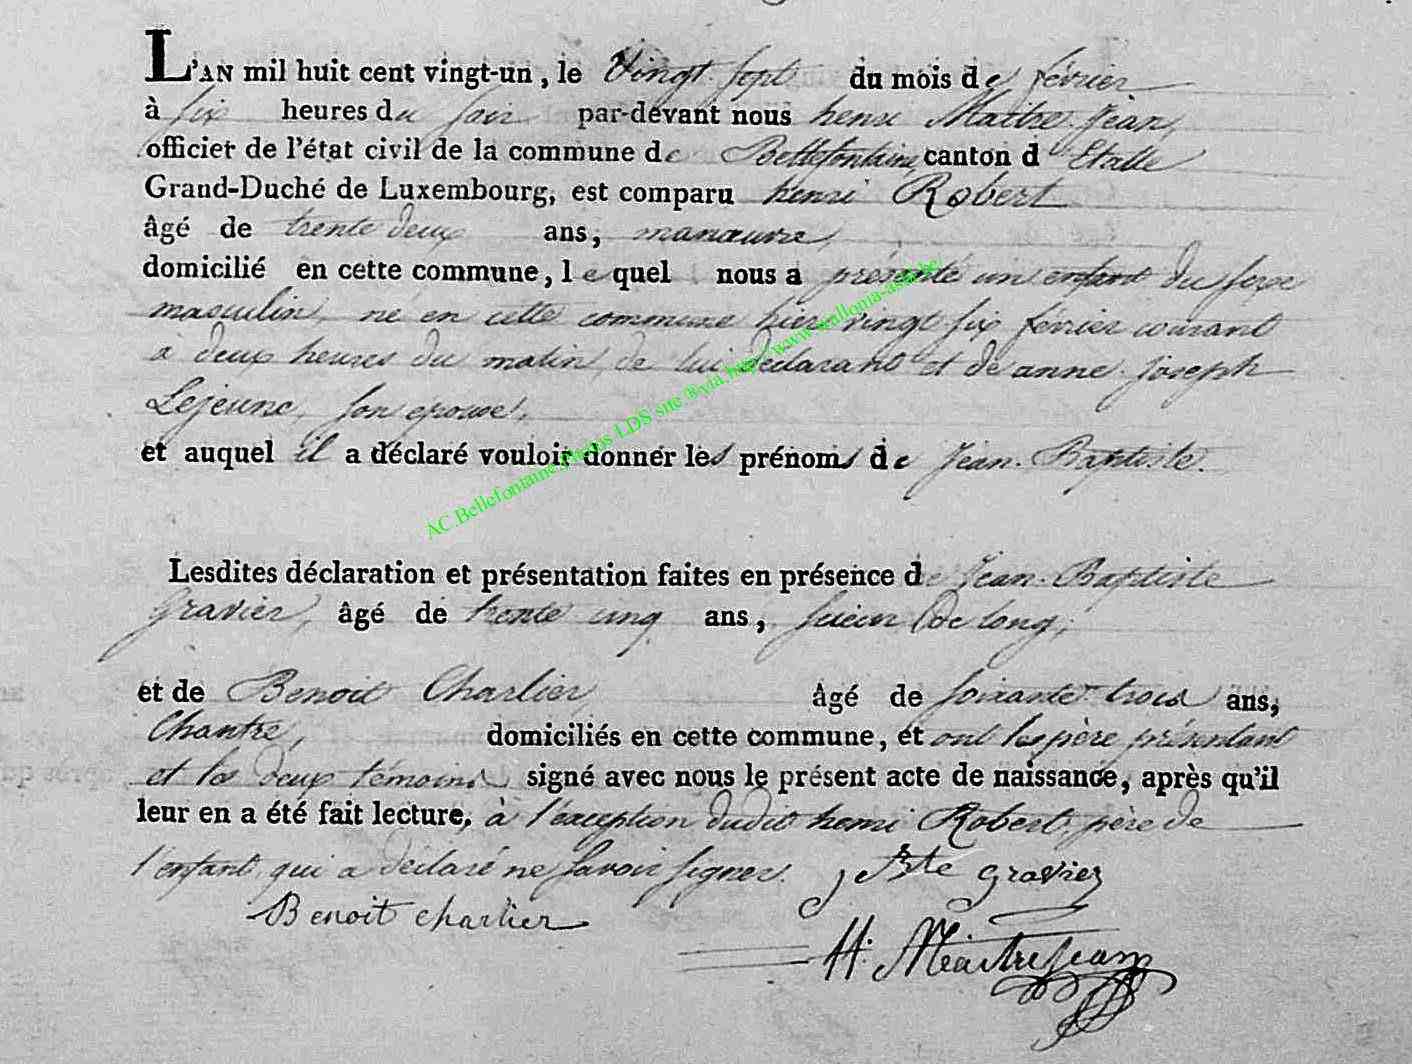 L'AN mil huit cent vingt-un, le Vingt Sept du mois de février
à six heures du soir par-devant nous henri Maitre Jean,
officier de l'état civil de la commune de Bellefontaine, canton d'Etalle
Grand-Duché de Luxembourg, est comparu henri Robert
âgé de trente deux ans, manœuvre,
domicilié en cette commune, lequel nous a présenté un enfant du sexe
masculin, né en cette commune hier vingt six février courant
à deux heures du matin, de lui déclarant et de anne Joseph
Lejeune, son epouse,
et auquel il a déclaré vouloir donner les prénoms de Jean-Baptiste.
AC Bellefontaine Photos LDS site ®via http://www.wallonia-asbl.be/
Lesdites déclaration et présentation faites en présence de Jean-Baptiste
Gravier, âgé de trente cinq ans, scieur de long,
et de Benoit Charlier, âgé de soixante trois ans,
Chantre, domiciliés en cette commune, et ont les père présentant
et les deux témoins signé avec nous le présent acte de naissance, après qu'il
leur en a été fait lecture, à l'exception dudit henri Robert, père de
l'enfant qui a déclaré ne savoir signer. J Bte Gravier
Benoit Charlier
H. Maitrejean